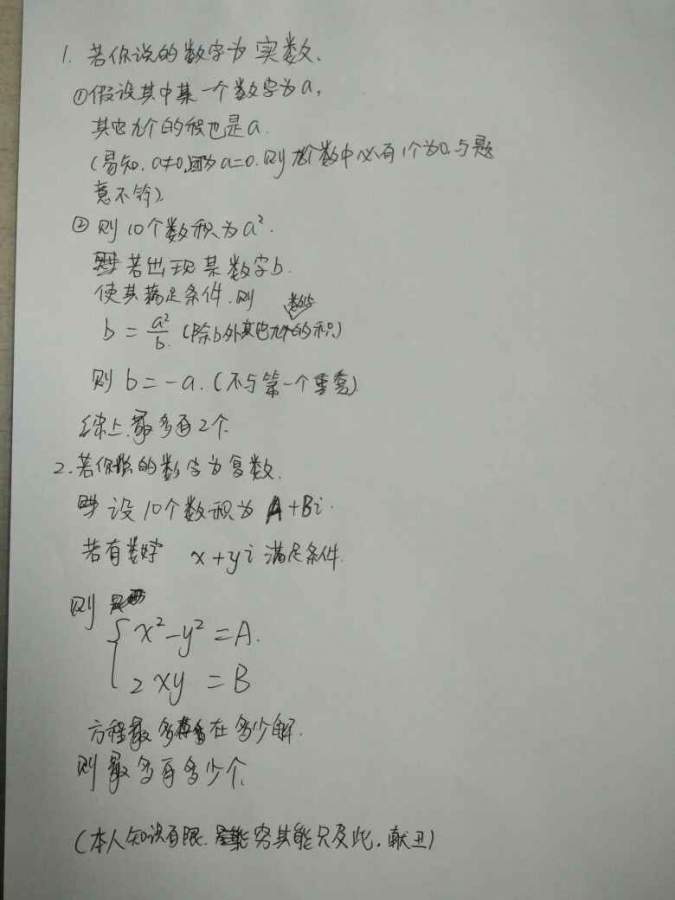 1. 若你说的数字为实数.
①假设其中某一个数字为a,
其它九个的积也是a.
(易知, a≠0,因为a=0.则九个数中必有1个为0.与题
意不符).
② 则10个数积为a².
若出现某数字b.
使其满足条件.则
b = a²/b. (除b外其他九个数的积)
则 b = -a. (不与第一个重复)
综上.最多有2个.
2. 若你说的数字为复数.
设10个数积为 A+Bi.
若有数字 x+yi 满足条件.
则
{ x²-y² = A.
2xy = B
方程最多存在多少解.
则最多有多少个.
(本人知识有限. 穷其能只及此. 献丑)